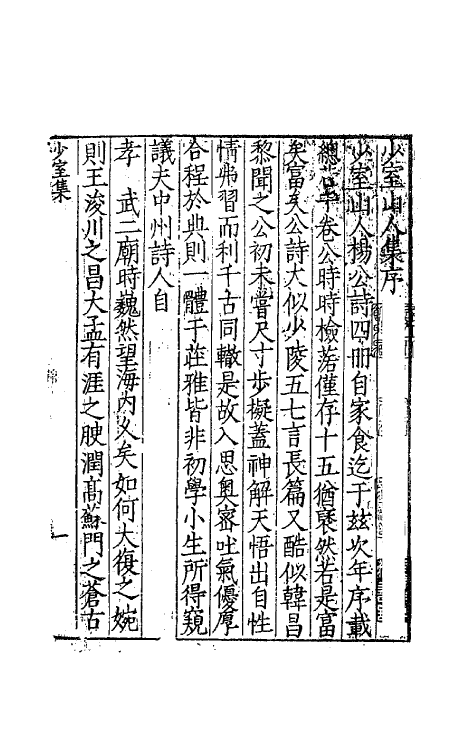 少室山人集序
少室山人楊公詩四冊自家食迄于茲次年序載
總  卷公時時檢葺僅存十五猶裒然若是富
矣富矣公詩大似少陵五七言長篇又酷似韓昌
黎聞之公初未嘗尺寸步擬蓋神解天悟出自性
情弗習而利千古同轍是故入思奧窔吐氣優厚
合程於典則一體于莊雅皆非初學小生所得窺
議夫中州詩人自
孝 武二廟時巍然望海內久矣如何大復之婉
則王浚川之昌大孟有涯之腴潤高蘇門之蒼古
少室集
一